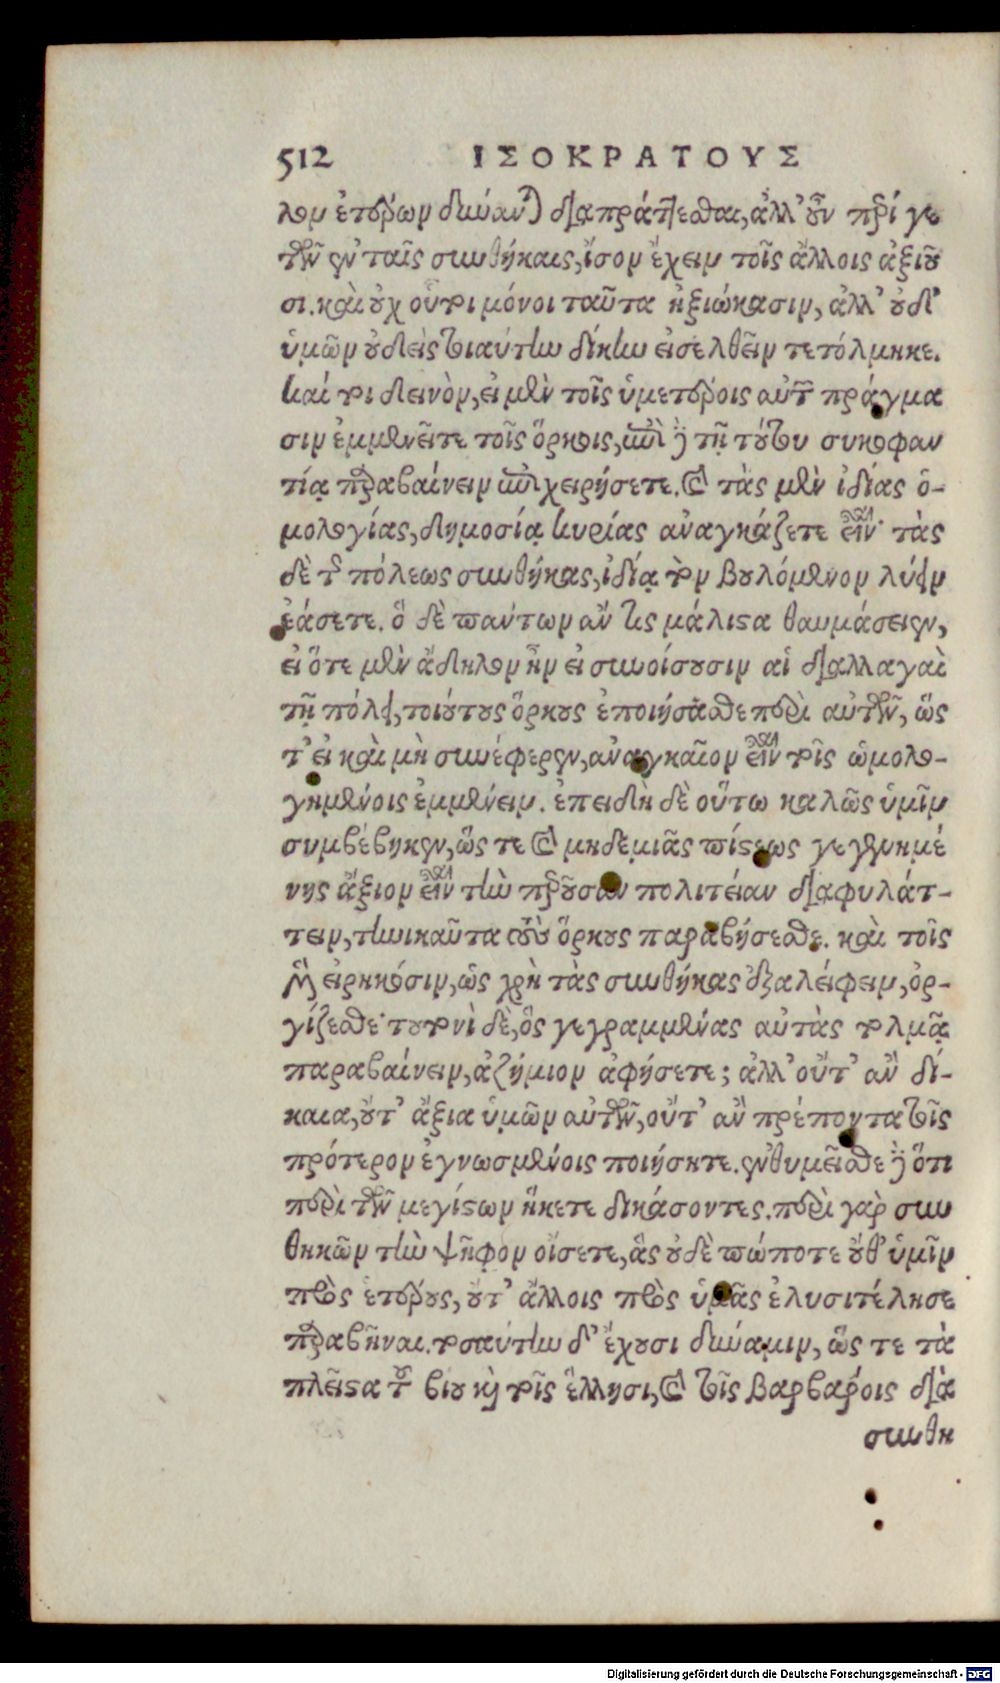 512 ΙΣΟΚΡΑΤΟΥΣ
λον ἑτέρων δύνανται διαπράττεσθαι, ἀλλ' οὖν περί γε
τῶν ἐν ταῖς συνθήκαις, ἴσον ἔχειν τοῖς ἄλλοις ἀξιοῦ
σι. καὶ οὐχ οὗτοι μόνοι ταῦτα ἠξιώκασιν, ἀλλ' οὐδ'
ὑμῶν οὐδεὶς τοιαύτην δίκην εἰσελθεῖν τετόλμηκε.
καί τοι δεινὸν, εἰ μὲν τοῖς ὑμετέροις αὐτῶν πράγμα
σιν ἐμμενεῖτε τοῖς ὅρκοις, ἐπὶ δὲ τῇ τούτου συκοφαν
τίᾳ παραβαίνειν ἐπιχειρήσετε. καὶ τὰς μὲν ἰδίας ὁ-
μολογίας, δημοσίᾳ κυρίας ἀναγκάζετε εἶναι· τὰς
δὲ τῆς πόλεως συνθήκας, ἰδίᾳ τὸν βουλόμενον λύειν
ἐάσετε. ὃ δὲ πάντων ἄν τις μάλιστα θαυμάσειεν,
εἰ ὅτε μὲν ἄδηλον ἦν εἰ συνοίσουσιν αἱ διαλλαγαὶ
τῇ πόλει, τοιούτους ὅρκους ἐποιήσασθε περὶ αὐτῶν, ὥς
τ' εἰ καὶ μὴ συνέφερεν, ἀναγκαῖον εἶναι τοῖς ὡμολο-
γημένοις ἐμμένειν. ἐπειδὴ δὲ οὕτω καλῶς ὑμῖν
συμβέβηκεν, ὥς τε καὶ μηδεμιᾶς πίστεως γεγενημέ
νης ἄξιον εἶναι τὴν παροῦσαν πολιτείαν διαφυλάτ-
τειν, τηνικαῦτα τοὺς ὅρκους παραβήσεσθε. καὶ τοῖς
μὲν εἰρηκόσιν, ὡς χρὴ τὰς συνθήκας ἐξαλείφειν, ὀρ-
γίζεσθε· τουτονὶ δὲ, ὃς γεγραμμένας αὐτὰς τολμᾷ
παραβαίνειν, ἀζήμιον ἀφήσετε; ἀλλ' οὔτ' ἂν δί-
καια, οὔτ' ἄξια ὑμῶν αὐτῶν, οὔτ' ἂν πρέποντα τοῖς
πρότερον ἐγνωσμένοις ποιήσητε. ἐνθυμεῖσθε δὲ ὅτι
περὶ τῶν μεγίστων ἥκετε δικάσοντες. περὶ γὰρ συν
θηκῶν τὴν ψῆφον οἴσετε, ἃς οὐδὲ πώποτε οὔθ' ὑμῖν
πρὸς ἑτέρους, οὔτ' ἄλλοις πρὸς ὑμᾶς ἐλυσιτέλησε
παραβῆναι. τοσαύτην δ' ἔχουσι δύναμιν, ὥς τε τὰ
πλεῖστα τοῦ βίου καὶ τοῖς ἕλλησι, καὶ τοῖς βαρβάροις διὰ
συνθη
Digitalisierung gefördert durch die Deutsche Forschungsgemeinschaft - DFG